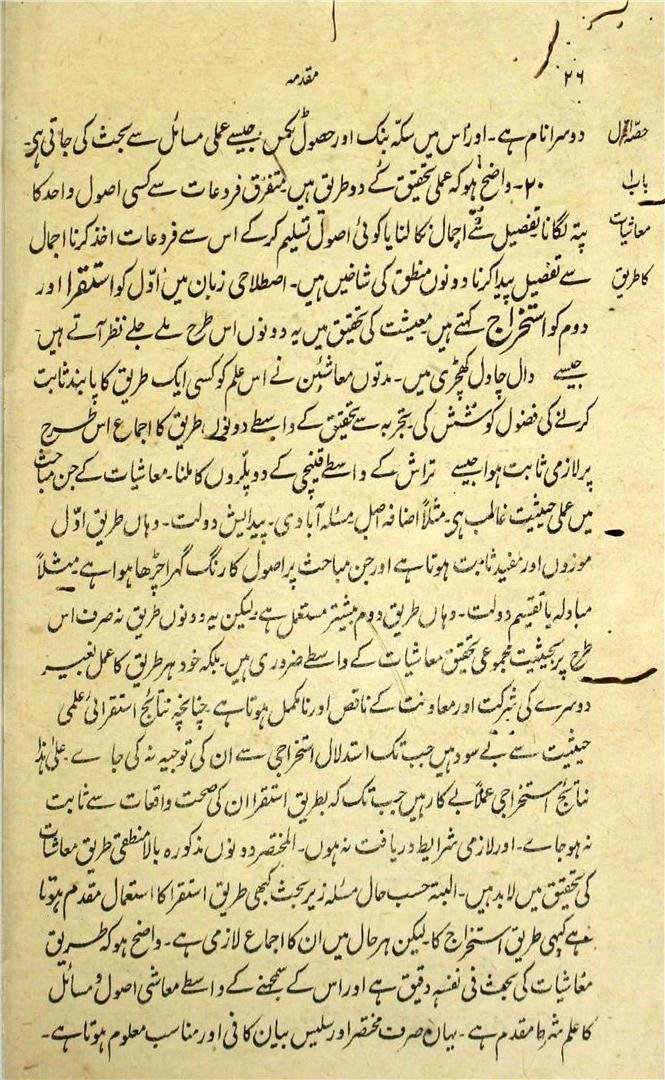 ۲۶
مقدمہ
حصّہ اوّل
باب ۱
معاشیات
کا طریق
دوسرا نام ہے۔ اور اس میں سکّہ بنک اور حصول ٹکس جیسے عملی مسائل سے بحث کی جاتی ہی۔
۲۰۔ واضح ہو کہ عملی تحقیق کے دو طریق ہیں۔ متفرق فروعات سے کسی اصول واحد کا
پتہ لگانا تفصیل سے اجمال نکالنا یا کوئی اصول تسلیم کرکے اس سے فروعات اخذ کرنا اجمال
سے تفصیل پیدا کرنا دونوں منطق کی شاخیں ہیں۔ اصطلاحی زبان میں اوّل کو استقرا اور
دوم کو استخراج کہتے ہیں معیشت کی تحقیق میں یہ دونوں اس طرح ملے جلے نظر آتے ہیں
جیسے دال چاول کھچڑی میں۔ مدتوں معاشئین نے اس علم کو کسی ایک طریق کا پابند ثابت
کرنے کی فضول کوشش کی۔ تجربہ سے تحقیق کے واسطے دونوں طریق کا اجماع اس طرح
پر لازمی ثابت ہوا جیسے تراش کے واسطے قینچی کے دو پلّروں کا ملنا۔ معاشیات کے جن مباحث
میں عملی حیثیت غالب ہی۔ مثلاً اضافہ اصل مسئلہ آبادی۔ پیدایش دولت۔ وہاں طریق اوّل
موزوں اور مفید ثابت ہوتا ہے اور جن مباحث پر اصول کا رنگ گہرا چڑھا ہوا ہے مثلاً
مبادلہ یا تقسیم دولت۔ وہاں طریق دوم بیشتر مستعمل ہے۔ لیکن یہ دونوں طریق نہ صرف اس
طرح پر بحیثیت مجموعی تحقیق معاشیات کے واسطے ضروری ہیں۔ بلکہ خود ہر طریق کا عمل بغیر
دوسرے کی شرکت اور معاونت کے ناقص اور نامکمل ہوتا ہے چنانچہ نتائج استقرائی علمی
حیثیت سے بے سود ہیں جب تک استدلال استخراجی سے ان کی توجیہ نہ کی جاے۔ علیٰ ہذا
نتائج استخراجی عملاً بے کار ہیں جب تک کہ بطریق استقرا ان کی صحت واقعات سے ثابت
نہ ہوجاے۔ اور لازمی شرایط دریافت نہ ہوں۔ المختصر دونوں مذکورہ بالا منطقی طریق معاشیات
کی تحقیق میں لابد ہیں۔ البتہ حسب حال مسئلہ زیر بحث کبھی طریق استقرا کا استعمال مقدم ہوتا
ہے کبھی طریق استخراج کا۔ لیکن ہر حال میں ان کا اجماع لازمی ہے۔ واضح ہو کہ طریق
معاشیات کی بحث فی نفسہ دقیق ہے اور اس کے سمجھنے کے واسطے معاشی اصول و مسائل
کا علم شرط مقدم ہے۔ یہاں صرف مختصر اور سلیس بیان کافی اور مناسب معلوم ہوتا ہے۔